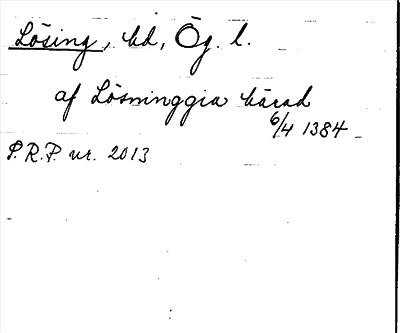 Lösing, hd, Ög. l.
af Lösninggia härad
6/4 1384
P.R.P. nr. 2013